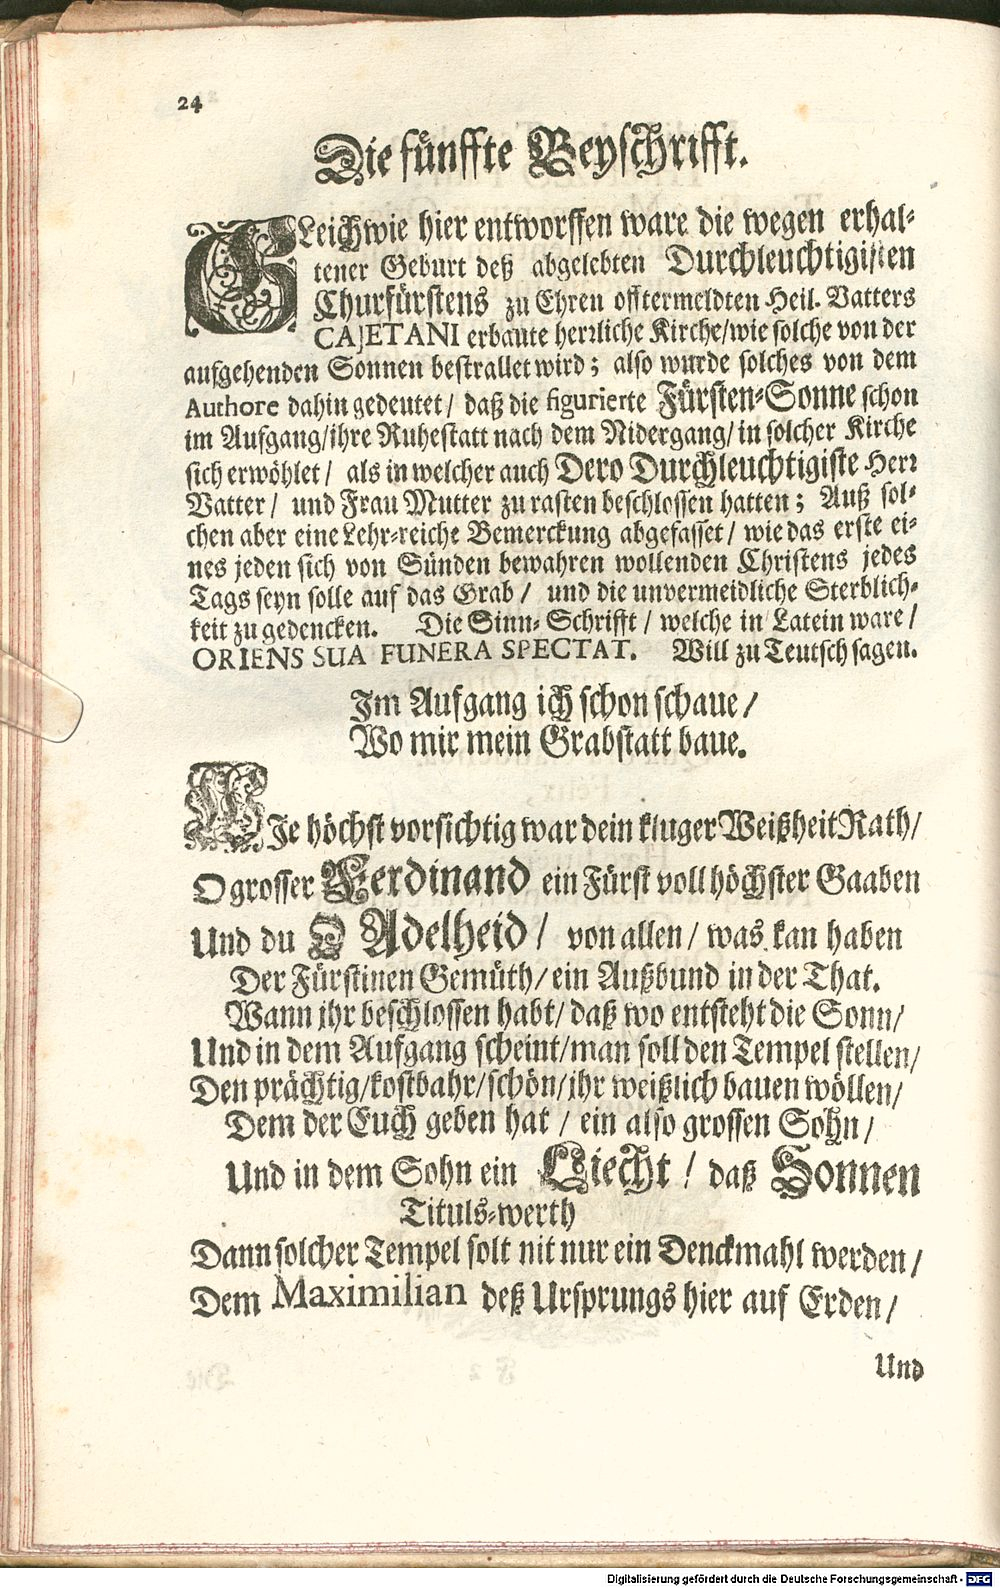 24
Die fünffte Beyschrifft.
GLeichwie hier entworffen ware die wegen erhal-
tener Geburt deß abgelebten Durchleuchtigisten
Churfürstens zu Ehren offtermeldten Heil. Vatters
CAJETANI erbaute herrliche Kirche/wie solche von der
aufgehenden Sonnen bestrallet wird; also wurde solches von dem
Authore dahin gedeutet/ daß die figurierte Fürsten-Sonne schon
im Aufgang/ihre Ruhestatt nach dem Nidergang/in solcher Kirche
sich erwöhlet/ als in welcher auch Dero Durchleuchtigiste Herr
Vatter/ und Frau Mutter zu rasten beschlossen hatten; Auß sol-
chen aber eine Lehr-reiche Bemerckung abgefasset/ wie das erste ei-
nes jeden sich von Sünden bewahren wollenden Christens jedes
Tags seyn solle auf das Grab/ und die unvermeidliche Sterblich-
keit zu gedencken. Die Sinn-Schrifft/ welche in Latein ware/
ORIENS SUA FUNERA SPECTAT. Will zu Teutsch sagen.
Im Aufgang ich schon schaue/
Wo mir mein Grabstatt baue.
WJe höchst vorsichtig war dein kluger Weißheit Rath/
O grosser Ferdinand ein Fürst voll höchster Gaaben
Und du O Adelheid/ von allen/ was kan haben
Der Fürstinen Gemüth/ ein Außbund in der That.
Wann ihr beschlossen habt/ daß wo entsteht die Sonn/
Und in dem Aufgang scheint/man soll den Tempel stellen/
Den prächtig/kostbahr/schön/ihr weißlich bauen wöllen/
Dem der Euch geben hat/ ein also grossen Sohn/
Und in dem Sohn ein Liecht/ daß Sonnen
Tituls-werth
Dann solcher Tempel solt nit nur ein Denckmahl werden/
Dem Maximilian deß Ursprungs hier auf Erden/
Und
Digitalisierung gefördert durch die Deutsche Forschungsgemeinschaft - DFG